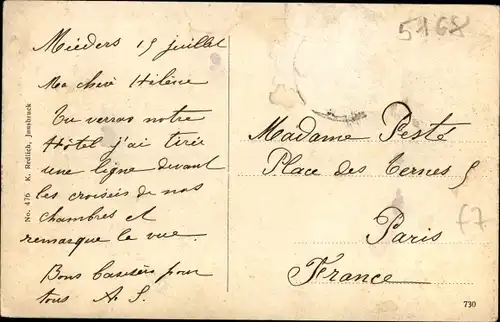 Mieders 15 juillet
Ma chère Hélène
Tu verras notre
Hôtel j'ai tirée
une ligne devant
les croisées de nos
chambres et
remarque la vue.
Bons baisers pour
tous A. S.
No. 476 K. Redlich, Innsbruck
5168
Madame Pesté
Place des Ternes 5
Paris
France
f7
730